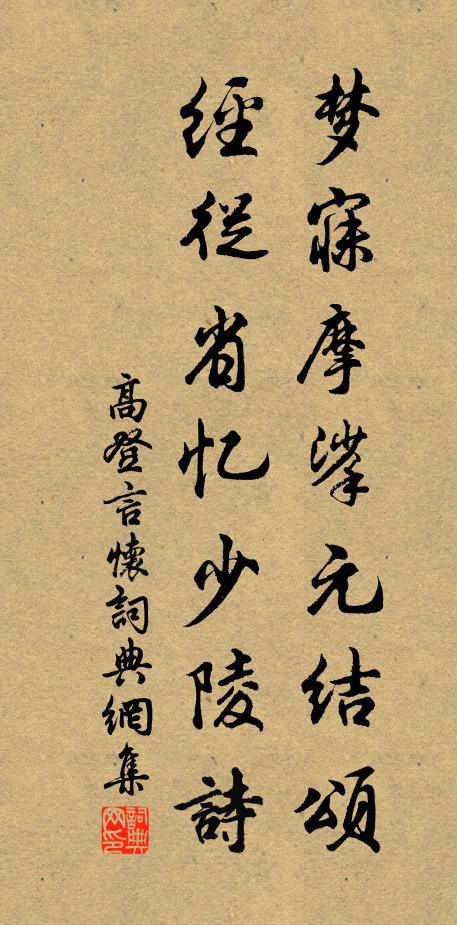 梦寐摩挲元结頌
經從省忆少陵詩
高登言懷詞典網集
詞典网印